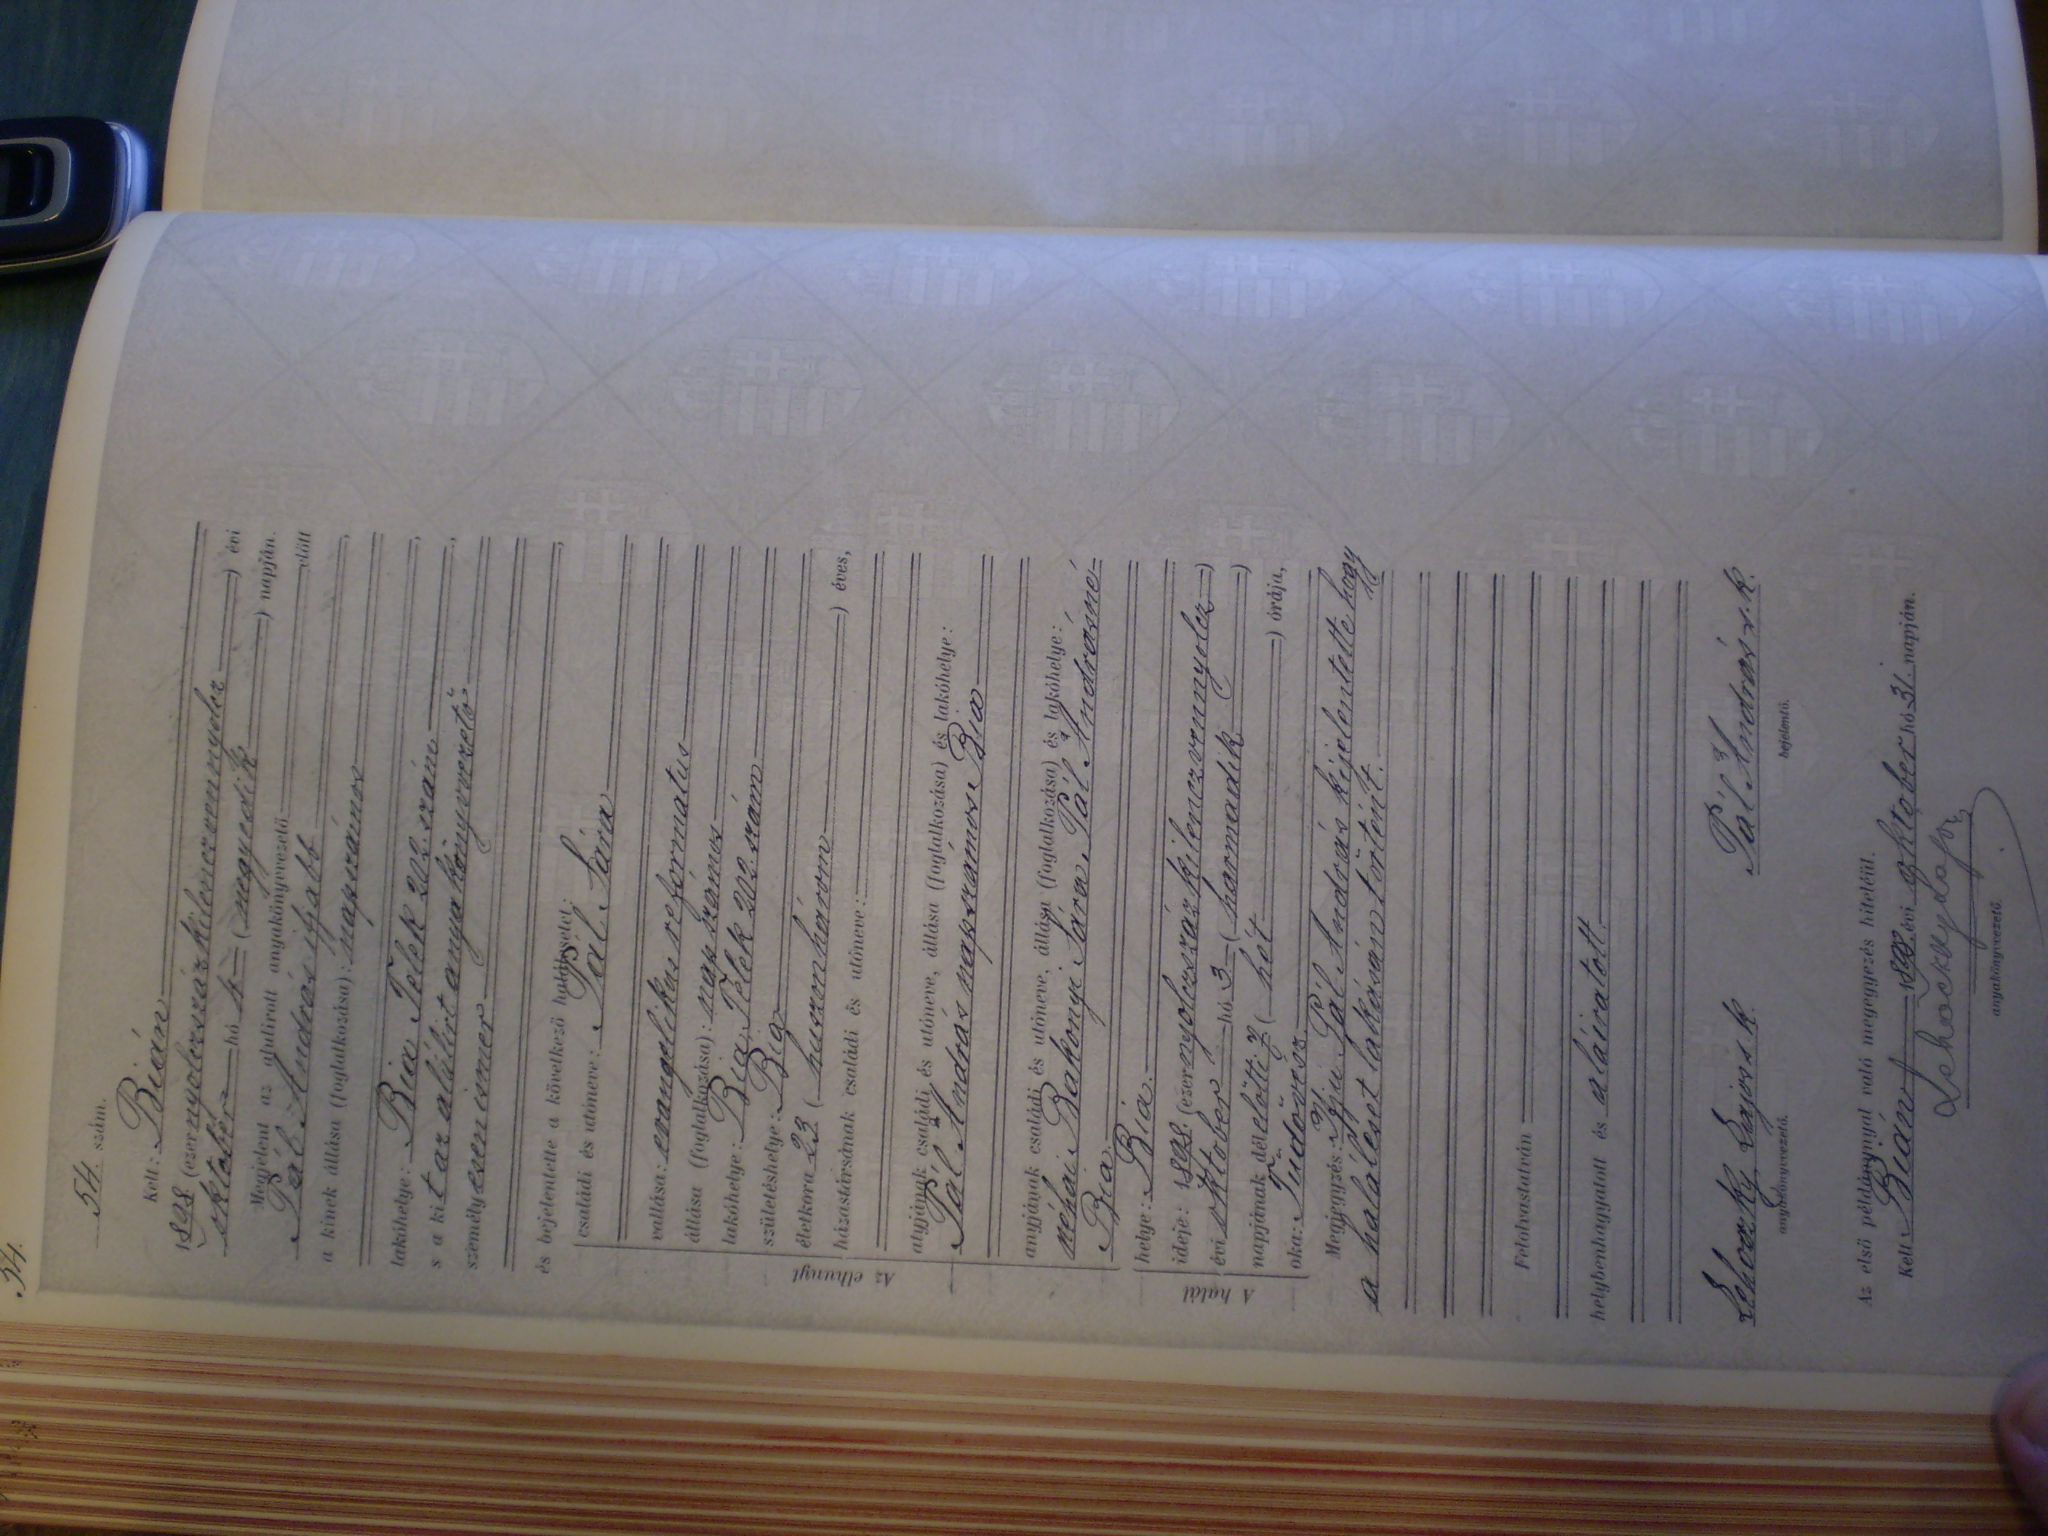 54.
54. szám.
Kelt: Bián
1898 (ezernyolcszázkilenczvennyolcz) évi
október hó 4 (negyedik) napján.
Megjelent az alulirott anyakönyvvezető előtt
Pál András ifjabb
a kinek állása (foglalkozása): napszámos
lakóhelye: Bia Telek 202. szám
s a kit az alúlirt anyakönyvvezető
személyesen ismer
és bejelentette a következő halálesetet:
Az elhunyt
családi és utóneve: Pál Sára
vallása: evangelikus reformatus
állása (foglalkozása): napszámos
lakóhelye: Bia Telek 202. szám
születéshelye: Bia
életkora 23 (huszonhárom) éves,
házastársának családi és utóneve:
atyjának családi és utóneve, állása (foglalkozása) és lakóhelye:
Pál András napszámos Bia
anyjának családi és utóneve, állása (foglalkozása) és lakóhelye:
néhai Bakonyi Sára Pál Andrásné
Bia
A halál
helye: Bia.
ideje: 1898 (ezernyolczszázkilenczvennyolcz)
évi október hó 3 (harmadik)
napjának délelőtti 7 (hét) órája,
oka: Tüdővész
Megjegyzés: Ifju Pál András kijelentette hogy
a haláleset lakásán történt.
Felolvastatván
helybenhagyatott és aláiratott.
Lehoczky Lajos s. k. Pál András s. k.
anyakönyvvezető. bejelentő.
Az első példánynyal való megegyzés hiteléül.
Kelt Bián 1898 évi október hó 31. napján.
Lehoczky Lajos
anyakönyvvezető.